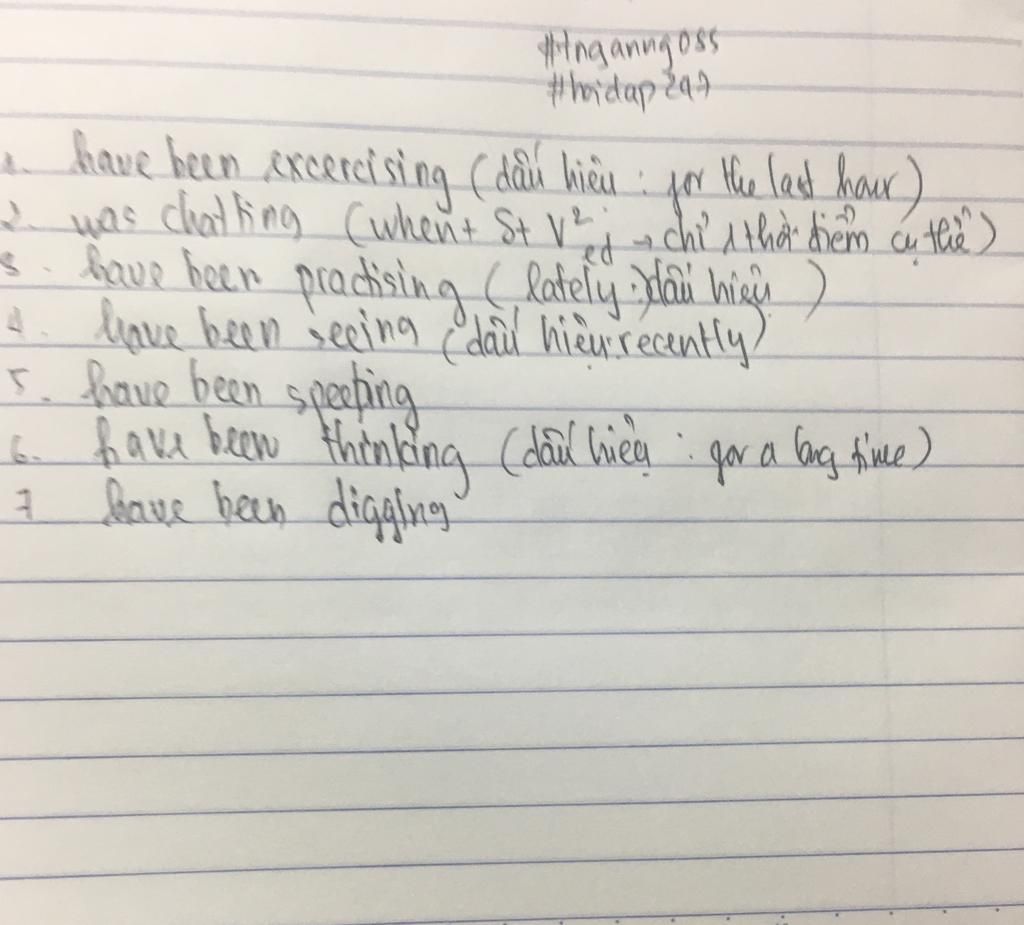 #tnganng055
#hoidap247
1. have been excercising (dấu hiệu : for the last hour)
2. was chatting (when + S + V2 ed → chỉ 1 thời điểm cụ thể)
3. have been practising (lately : dấu hiệu)
4. have been seeing (dấu hiệu: recently)
5. have been
6. have been thinking (dấu hiệu : for a long time)
7 have been digging